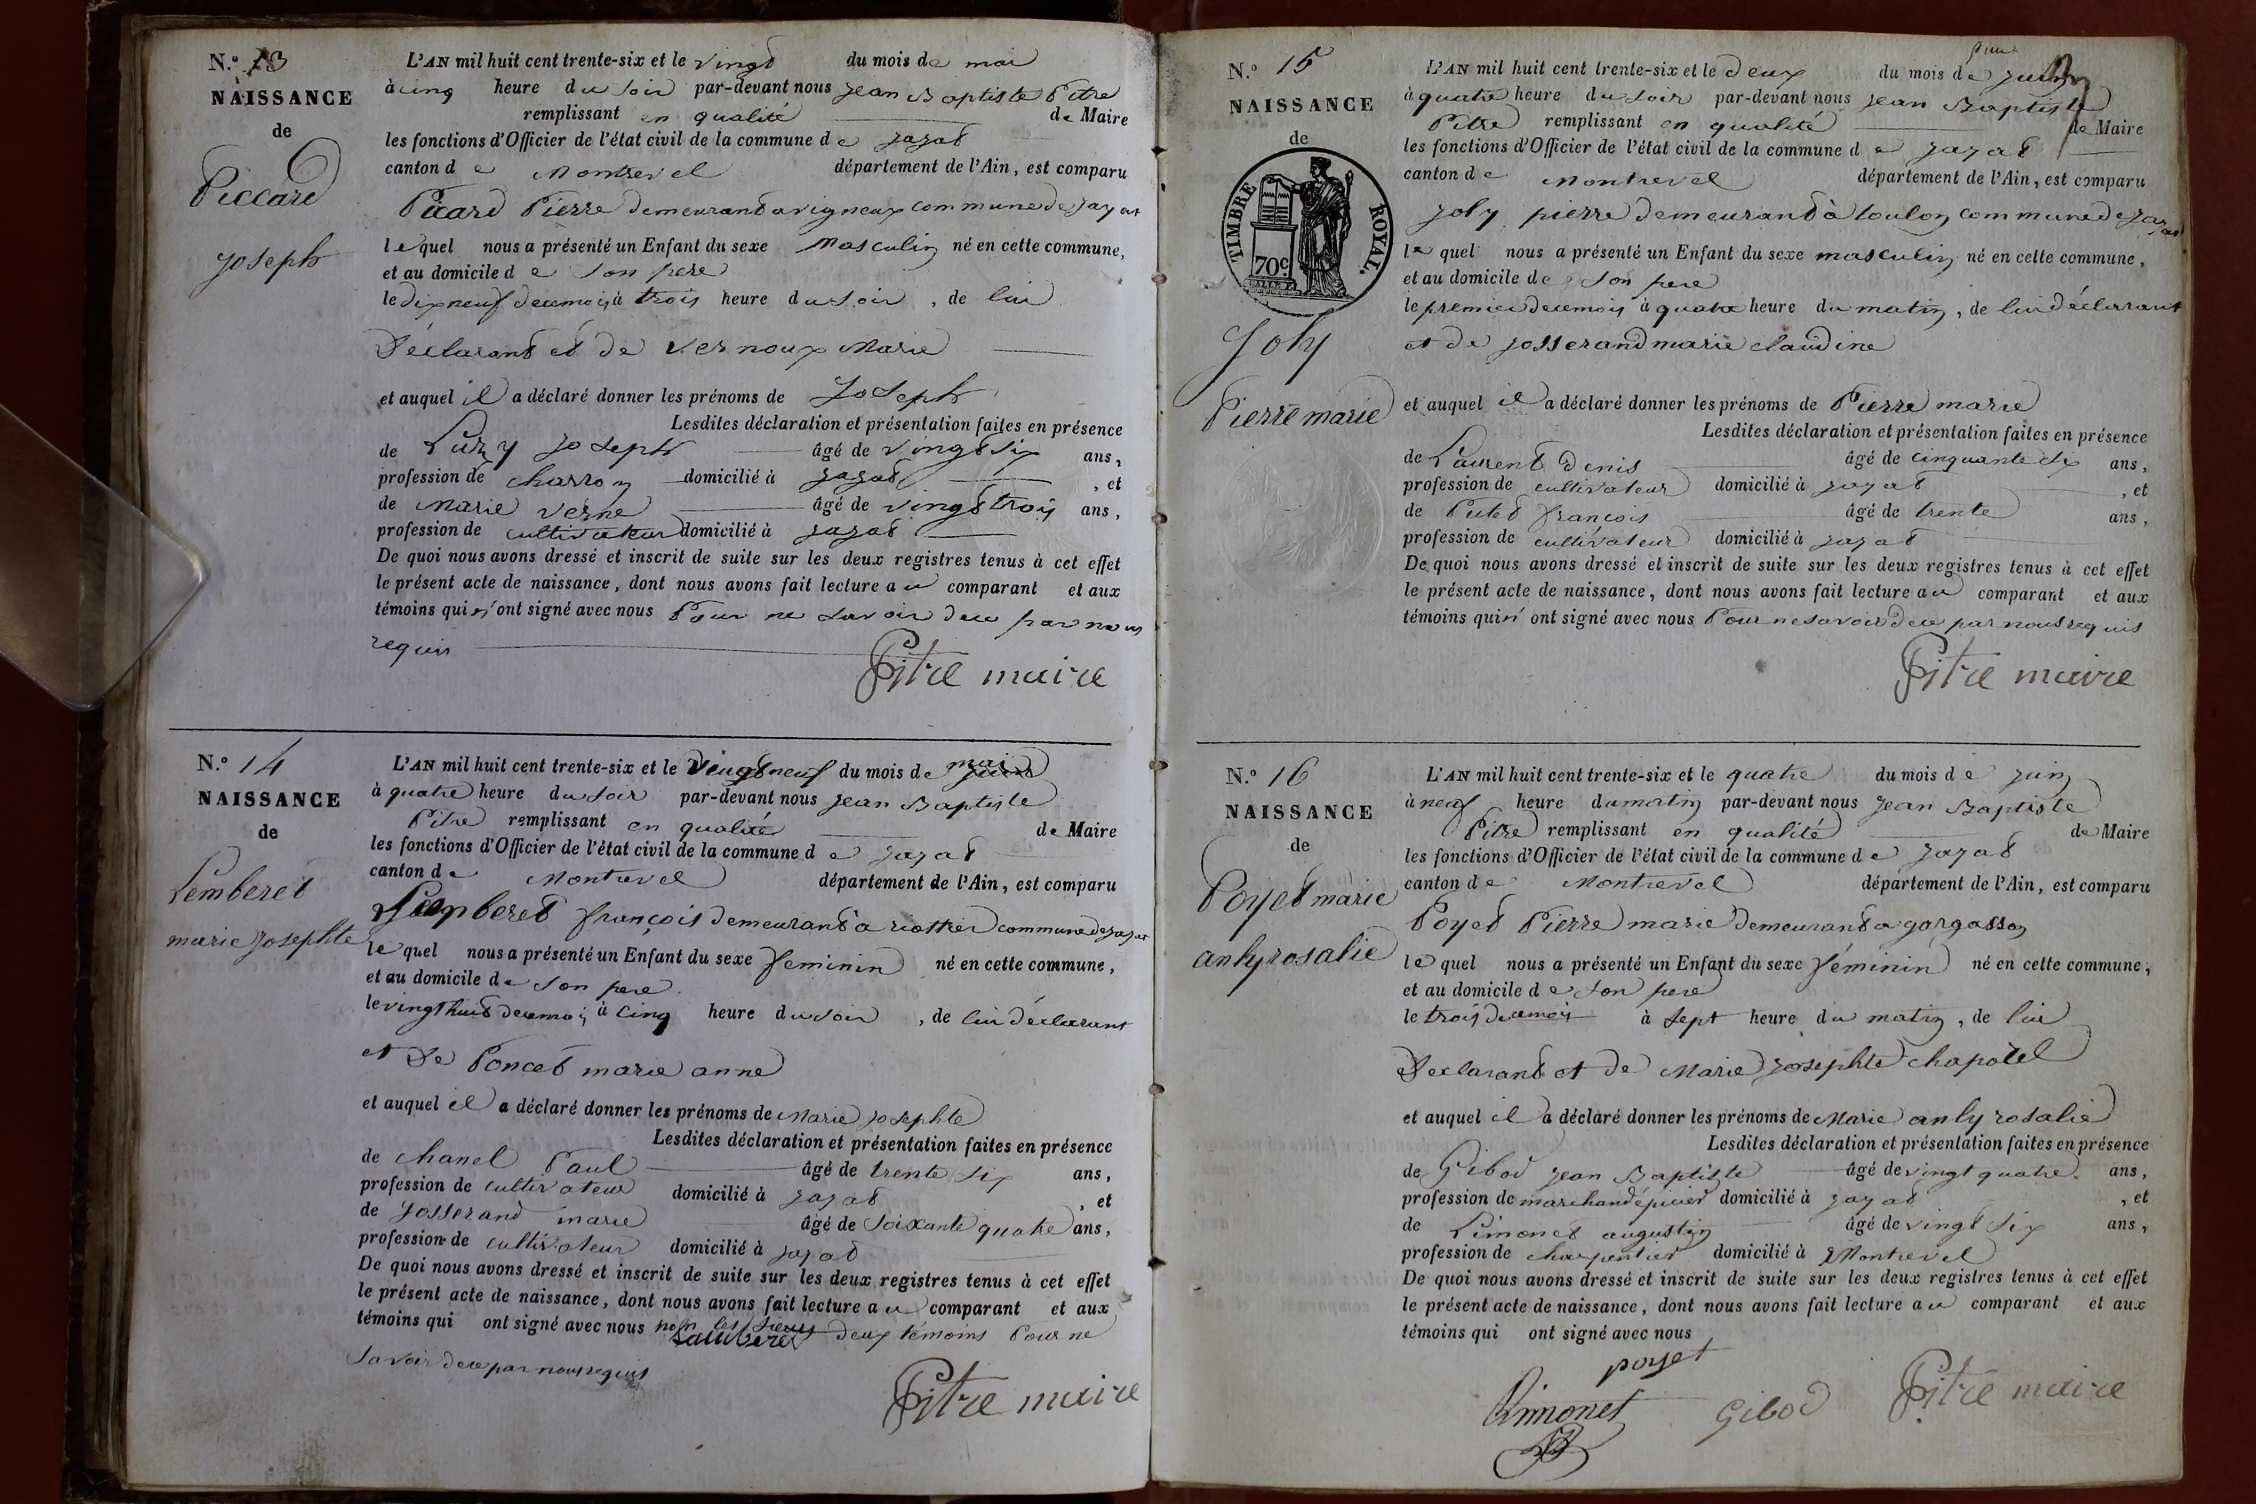 N.º 13
NAISSANCE
de
Piccard
Joseph
L'AN mil huit cent trente-six et le vingt du mois de mai
à cinq heure du soir par-devant nous Jean Baptiste Pitre
remplissant en qualité de Maire
les fonctions d'Officier de l'état civil de la commune de Jayat
canton de Montrevel département de l'Ain, est comparu
Picard Pierre demeurant a vigneux commune de Jayat
lequel nous a présenté un Enfant du sexe Masculin né en cette commune,
et au domicile de son pere
le dix neuf decemois à trois heure du soir, de lui
Déclarant et de vernoux Marie
et auquel il a déclaré donner les prénoms de Joseph
Lesdites déclaration et présentation faites en présence
de Joseph âgé de vingt six ans,
profession de charron domicilié à Jayat, et
de Marie verne âgé de vingt trois ans,
profession de cultivateur domicilié à Jayat
De quoi nous avons dressé et inscrit de suite sur les deux registres tenus à cet effet
le présent acte de naissance, dont nous avons fait lecture au comparant et aux
témoins qui n'ont signé avec nous Pour ne savoir de ce par nous
requis
Pitre maire
N.º 14
NAISSANCE
de
Lemberet
marie Josephte
L'AN mil huit cent trente-six et le vingt neuf du mois de mai
à quatre heure du soir par-devant nous Jean Baptiste
Pitre remplissant en qualité de Maire
les fonctions d'Officier de l'état civil de la commune de Jayat
canton de Montrevel département de l'Ain, est comparu
françois demeurant à riottier commune de Jayat
lequel nous a présenté un Enfant du sexe féminin né en cette commune,
et au domicile de son pere
le vingt huit decemois à cinq heure du soir, de lui déclarant
et De Poncet marie anne
et auquel il a déclaré donner les prénoms de Marie Josephte
Lesdites déclaration et présentation faites en présence
de chanel Paul âgé de trente six ans,
profession de cultivateur domicilié à Jayat, et
de Josserand marie âgé de soixante quatre ans,
profession de cultivateur domicilié à Jayat
De quoi nous avons dressé et inscrit de suite sur les deux registres tenus à cet effet
le présent acte de naissance, dont nous avons fait lecture au comparant et aux
témoins qui ont signé avec nous non les deux témoins Pour ne
savoir de ce par nous requis
Pitre maire
N.º 15
NAISSANCE
de
TIMBRE ROYAL.
70c.
Joly
Pierre marie
L'AN mil huit cent trente-six et le deux du mois de juin
à quatre heure du soir par-devant nous Jean Baptiste
Pitre remplissant en qualité de Maire
les fonctions d'Officier de l'état civil de la commune de Jayat
canton de Montrevel département de l'Ain, est comparu
Joly pierre demeurant à toulon commune de Jayat
lequel nous a présenté un Enfant du sexe masculin né en cette commune,
et au domicile de son pere
le premier decemois à quatre heure du matin, de lui déclarant
et de Josserand marie claudine
et auquel il a déclaré donner les prénoms de Pierre marie
Lesdites déclaration et présentation faites en présence
de Laurent Denis âgé de cinquante six ans,
profession de cultivateur domicilié à Jayat, et
de Putet françois âgé de trente ans,
profession de cultivateur domicilié à Jayat
De quoi nous avons dressé et inscrit de suite sur les deux registres tenus à cet effet
le présent acte de naissance, dont nous avons fait lecture au comparant et aux
témoins qui n'ont signé avec nous Pour ne savoir de ce par nous requis
Pitre maire
N.º 16
NAISSANCE
de
Poyet marie
anly rosalie
L'AN mil huit cent trente-six et le quatre du mois de juin
à neuf heure du matin par-devant nous Jean Baptiste
Pitre remplissant en qualité de Maire
les fonctions d'Officier de l'état civil de la commune de Jayat
canton de Montrevel département de l'Ain, est comparu
Poyet Pierre marie demeurant a gargasson
lequel nous a présenté un Enfant du sexe féminin né en cette commune,
et au domicile de son pere
le trois decemois à sept heure du matin, de lui
Declarant et de Marie Josephte chapotel
et auquel il a déclaré donner les prénoms de Marie anly rosalie
Lesdites déclaration et présentation faites en présence
de Gibod Jean Baptiste âgé de vingt quatre ans,
profession de marchand épicier domicilié à Jayat, et
de Limonet augustin âgé de vingt six ans,
profession de charpentier domicilié à Montrevel
De quoi nous avons dressé et inscrit de suite sur les deux registres tenus à cet effet
le présent acte de naissance, dont nous avons fait lecture au comparant et aux
témoins qui ont signé avec nous
poyet
Limonet Gibod Pitre maire